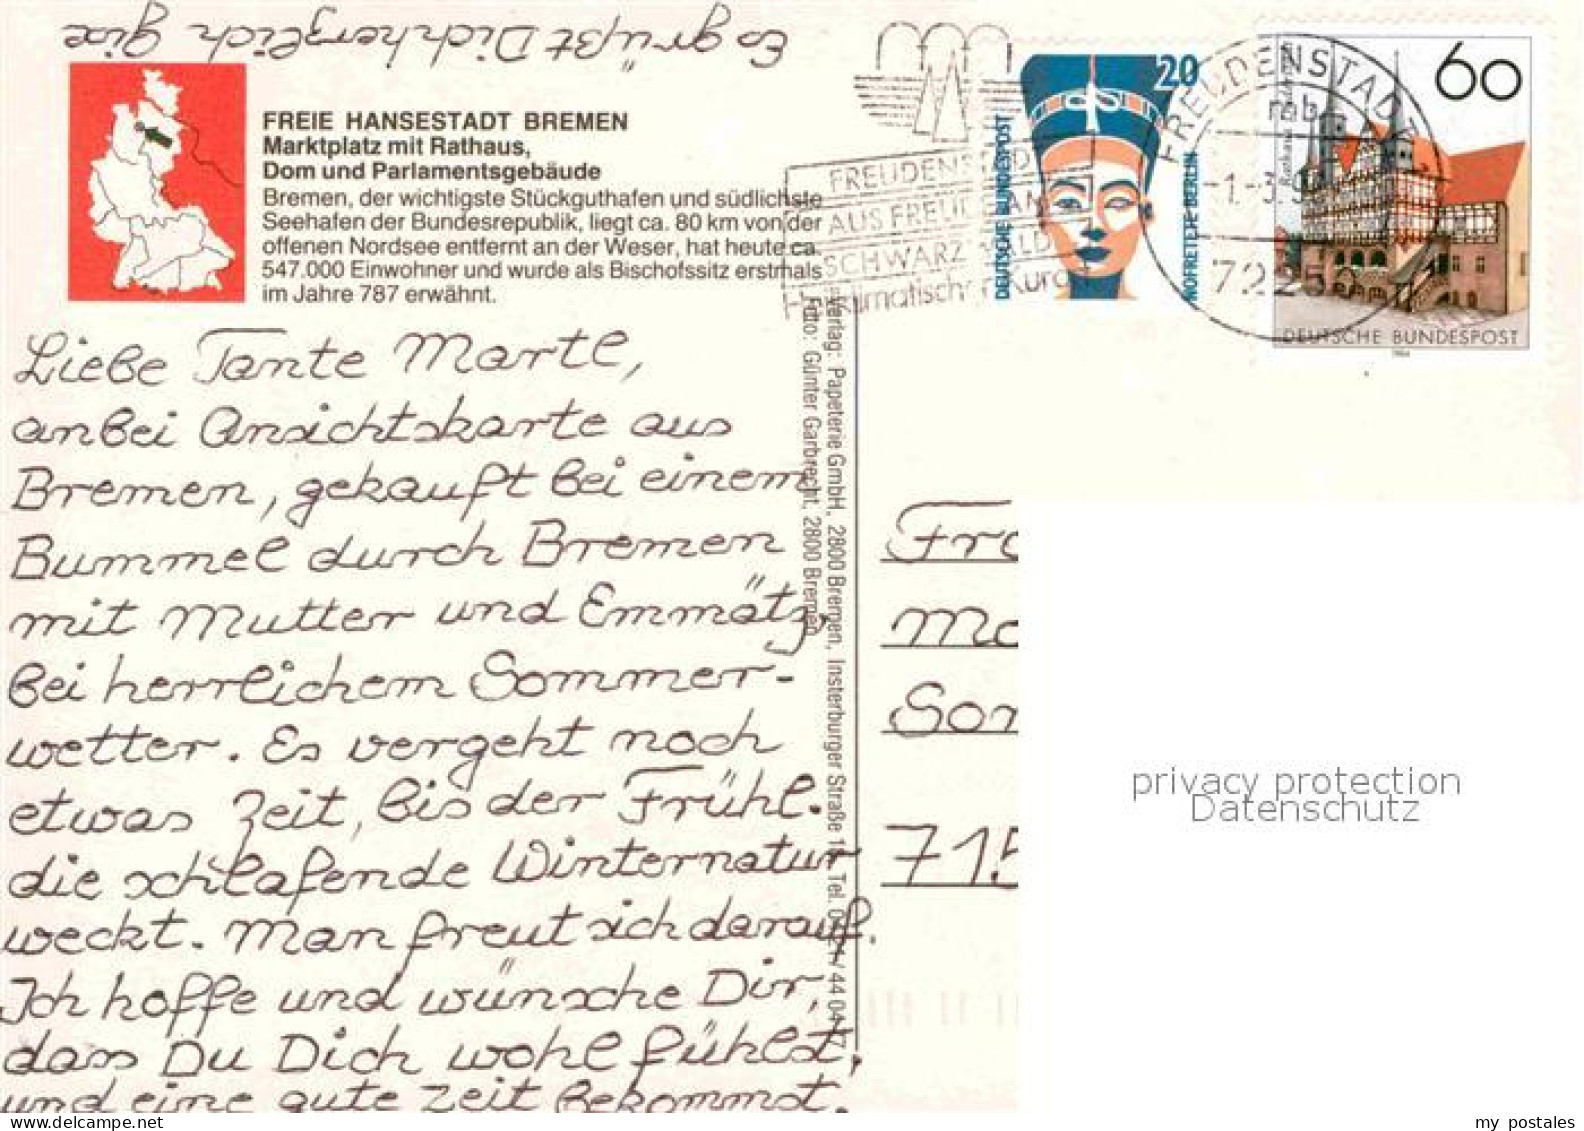 Es grüßt Dich herzlich
FREIE HANSESTADT BREMEN
Marktplatz mit Rathaus,
Dom und Parlamentsgebäude
Bremen, der wichtigste Stückguthafen und südlichste
Seehafen der Bundesrepublik, liegt ca. 80 km von der
offenen Nordsee entfernt an der Weser, hat heute ca.
547.000 Einwohner und wurde als Bischofssitz erstmals
im Jahre 787 erwähnt.
Liebe Tante Martl,
anbei Ansichtskarte aus
Bremen, gekauft bei einem
Bummel durch Bremen
mit Mutter und Emmätz,
bei herrlichem Sommer-
wetter. Es vergeht noch
etwas Zeit, bis der Frühl.
die schlafende Winternatur
weckt. Man freut sich darauf.
Ich hoffe und wünsche Dir,
dass Du Dich wohl fühlst,
und eine gute Zeit bekommst.
Verlag: Papeterie GmbH, 2800 Bremen, Insterburger Straße Tel.
Foto: Günter Garbrecht, 2800 Bremen
FREUDENSTADT
AUS FREUDE AN
SCHWARZWALD
20
DEUTSCHE BUNDESPOST
NOFRETETE BERLIN
FREUDENSTADT
mb
-1.-3.9
7225
60
Rathaus
DEUTSCHE BUNDESPOST
1984
Fra
Ma
Son
715
privacy protection
Datenschutz
my postales